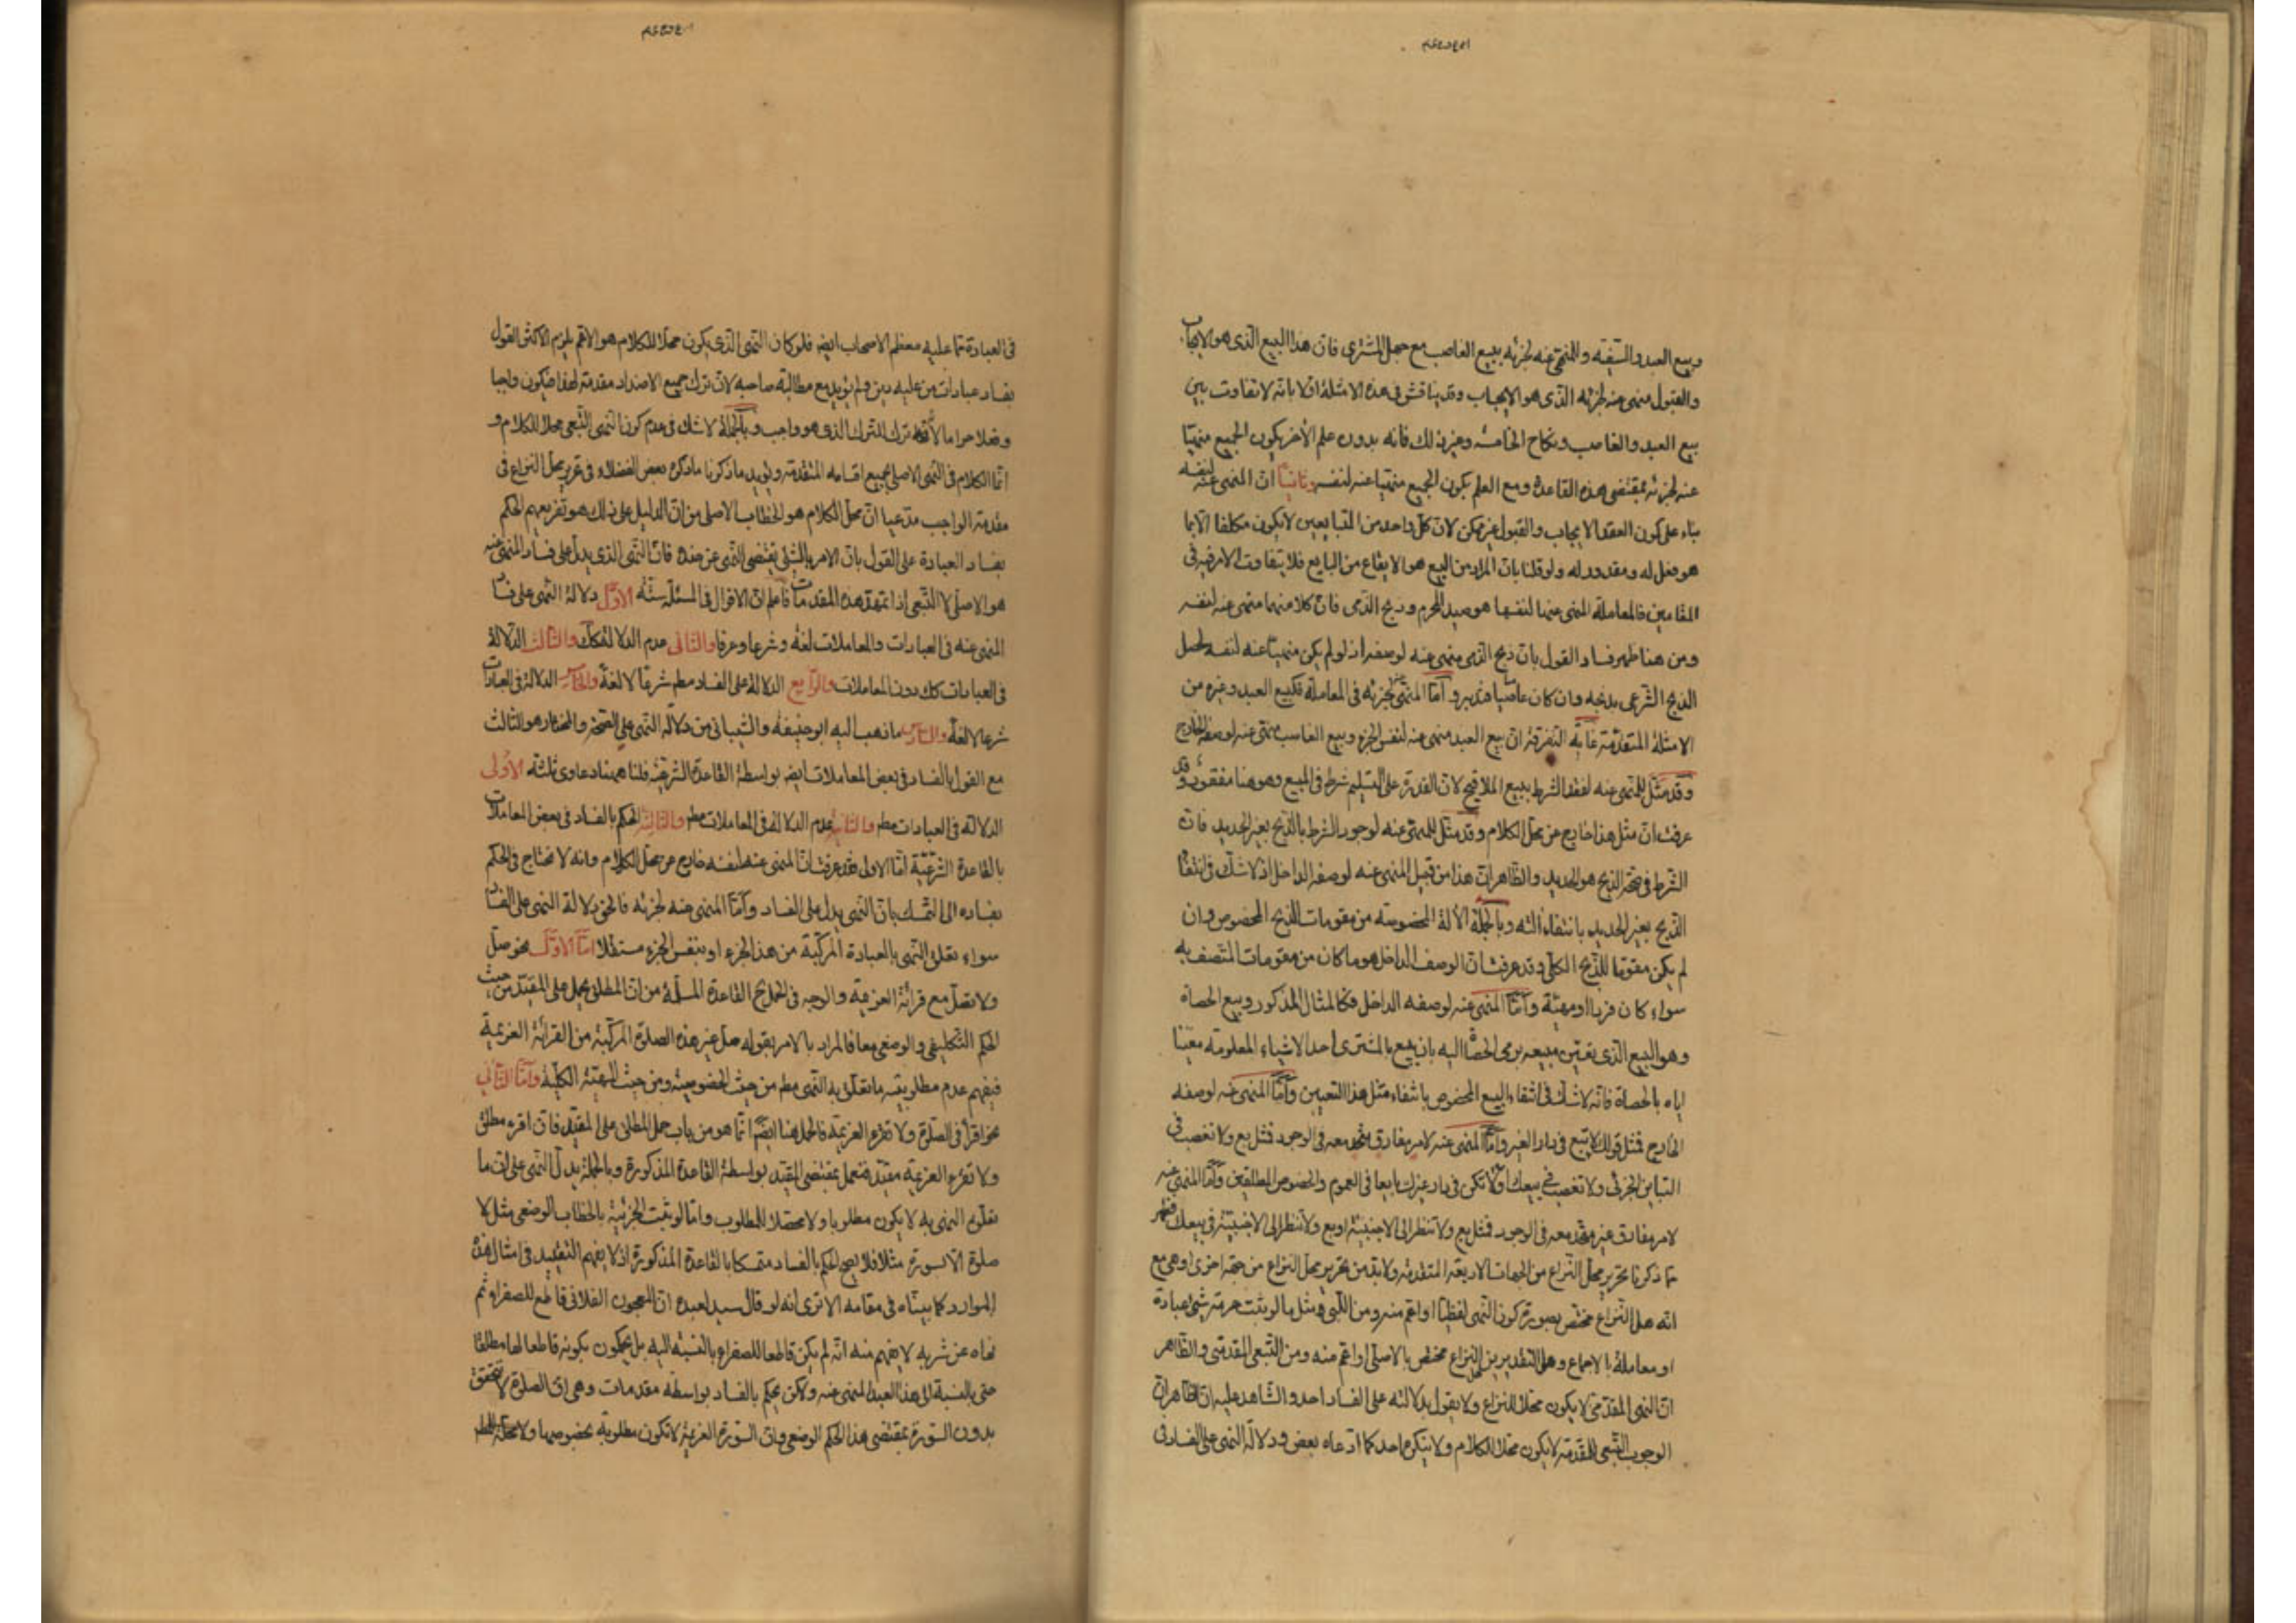 وبيع العبد والسفيه والمنهى عنه لجزئه ببيع الغاصب مع جهل المشترى فان هذا البيع الذى هو الايجاب
والقبول منهى عنه لجزئه الذى هو الايجاب وقد يناقش فى هذه الامثلة اولا بانه لا تفاوت بين
بيع العبد والغاصب ونكاح الخامسة وغير ذلك فانه بدون علم الأخر يكون الجميع منهيا
عنه لجزئه بمقتضى هذه القاعدة ومع العلم يكون الجميع منهيا عنه لنفسه وثانيا ان المنهى عنه لنفسه
بناء على كون العقد الايجاب والقبول غير ممكن لان كل واحد من المتبايعين لا يكون مكلفا الا بما
هو فعل له ومقدور له ولو قلنا بان المراد من البيع هو الايقاع من البايع فلا يتفاوت الامر فيه فى
المقامين فالمعاملة المنهى عنها لنفسها هو صيد المحرم وذبح الذمى فان كلا منهما منهى عنه لنفسه
ومن هنا ظهر فساد القول بان ذبح الذمى منهى عنه لوصفه اذ لو لم يكن منهيا عنه لنفسه لحصل
الذبح الشرعى بذبحه وان كان عاصيا فتدبر واما المنهى لجزئه فى المعاملة فكبيع العبد وغيره من
الامثلة المتقدمة غاية التفرقة ان بيع العبد منهى عنه لنفس الجزء وبيع الغاصب منهى عنه لوصفه الخارج
وقد مثل للمنهى عنه لفقد الشرط ببيع الملاقيح لان القدرة على التسليم شرط فى المبيع وهو هنا مفقود وقد
عرفت ان مثل هذا خارج عن محل الكلام وقد مثل للمنهى عنه لوجود الشرط بالذبح بغير الحديد فان
الشرط فى صحة الذبح هو الحديد والظاهر ان هذا من قبيل المنهى عنه لوصفه الداخل اذ لا شك فى انتفاء
الذبح بغير الحديد بانتفاء الته وبالجملة الألة المخصوصة من مقومات الذبح المخصوص وان
لم يكن مقوما للذبح الكلى وقد عرفت ان الوصف الداخل هو ما كان من مقومات المتصف به
سواء كان فردا او مهية واما المنهى عنه لوصفه الداخل فكالمثال المذكور وبيع الحصاة
وهو البيع الذى تعين مبيعه برمى الحصاة اليه بان يبيع بالمشترى احد الاشياء المعلومة معينا
اياه بالحصاة فانه لا شك فى انتفاء البيع المخصوص بانتفاء مثل هذا التعيين واما المنهى عنه لوصفه
الخارج فمثل قولك لا تبع فى دار الغير واما المنهى عنه لامر مفارق متحد معه فى الوجود فمثل بع ولا تغصب فى
التباين الجزئى ولا تغصب فى بيعك او لا تكن فى دار غيرك بايعا فى العموم والخصوص المطلقين واما المنهى عنه
لامر مفارق غير متحد معه فى الوجود فمثل بع ولا تنظر الى الاجنبية او بع ولا تنظر الى الاجنبية فى بيعك فظهر
مما ذكرنا تحرير محل النزاع من الجهات الاربعة المتقدمة ولابد من تحرير محل النزاع من جهة اخرى اوهى مع
انه هل النزاع مختص بصورة كون النهى لفظيا او اعم منه ومن اللبى فمثل ما لو ثبت حرمة شئ عبادة
او معاملة بالاجماع وهل التقديرين النزاع مختص بالاصلى او اعم منه ومن التبعى المقدمى والظاهر
ان النهى المقدمى لا يكون محلا للنزاع ولا يقول بدلالته على الفساد احد والشاهد عليه ان الظاهر ان
الوجوب التبعى للمقدمة لا يكون محلا للكلام ولا ينكره احد كما ادعاه بعض ودلالة النهى على الفساد فى
فى العبادة مما عليه معظم الاصحاب ايضا فلو كان النهى الذى يكون محلا للكلام هو الاعم يلزم الاكثر القول
بفساد عبادات من عليه دين ولم يؤديه مع مطالبة صاحبه لان ترك جميع الاضداد مقدمة لهذا فيكون واجبا
وفعلا حراما لانه ترك للترك الذى هو واجب وبالجملة لا شك فى عدم كون النهى التبعى محلا للكلام و
انما الكلام فى النهى الاصلى بجميع اقسامه المتقدمة ويؤيد ما ذكرنا ما ذكره بعض الفضلاء فى تحرير محل النزاع فى
مقدمة الواجب مدعيا ان محل الكلام هو الخطاب الاصلى من ان الدليل على ذلك هو تفريعهم الحكم
بفساد العبادة على القول بان الامر بالشئ يقتضى النهى عن ضده فان النهى الذى يدل على فساد المنهى عنه
هو الاصلى لا التبعى اذا تمهد هذه المقدمات فاعلم ان الاقوال فى المسئلة ستة الاول دلالة النهى على فساد
المنهى عنه فى العبادات والمعاملات لغة وشرعا وعرفا والثانى عدم الدلالة كك والثالث الدلالة
فى العبادات كك دون المعاملات والرابع الدلالة على الفساد مطم شرعا لا لغة والخامس الدلالة فى العبادات
شرعا لا لغة والسادس ما ذهب اليه ابو حنيفة والشيبانى من دلالة النهى على الصحة والمختار هو الثالث
مع القول بالفساد فى بعض المعاملات ايضا بواسطة القاعدة الشرعية فلنا ههنا دعاوى ثلثة الاولى
الدلالة فى العبادات مطم والثانية عدم الدلالة فى المعاملات مطم والثالثة الحكم بالفساد فى بعض المعاملات
بالقاعدة الشرعية اما الاولى فقد عرفت ان المنهى عنه لنفسه خارج عن محل الكلام وانه لا نحتاج فى الحكم
بفساده الى التمسك بان النهى يدل على الفساد واما المنهى عنه لجزئه فالحق دلالة النهى على الفساد
سواء تعلق النهى بالعبادة المركبة من هذا الجزء او بنفس الجزء مستقلا اما الاول نحو صل
ولا تصل مع قرائة العزيمة والوجه فى الحمل القاعدة المسلمة من ان المطلق يحمل على المقيد من حيث
الحكم التكليفى والوضعى معا فالمراد بالامر بقوله صل غير هذه الصلوة المركبة من القرائة العزيمة
فيفهم عدم مطلوبية ما تعلق به النهى مطم من حيث الخصوصية ومن حيث المهية الكلية واما الثانى
نحو اقرأ فى الصلوة ولا تقرء العزيمة فالحمل هنا ايضا انما هو من باب حمل المطلق على المقيد فان اقرء مطلق
ولا تقرء العزيمة مقيد فنعمل بمقتضى المقيد بواسطة القاعدة المذكورة وبالجملة يدل النهى على ان ما
تعلق النهى به لا يكون مطلوبا ولا محصلا للمطلوب واما لو ثبت الجزئية بالخطاب الوضعى مثل لا
صلوة الا بسورة مثلا فلا يصح الحكم بالفساد متمسكا بالقاعدة المذكورة اذ لا يفهم التقييد فى امثال هذه
الموارد كما بيناه فى مقامه الا ترى انه لو قال سيد لعبده ان المعجون الفلانى قاطع للصفراء ثم
نهاه عن شربه لا يفهم منه انه لم يكن قاطعا للصفراء بالنسبة اليه بل يحكمون بكونه قاطعا لها مطلقا
حتى بالنسبة الى هذا العبد المنهى عنه ولكن يحكم بالفساد بواسطة مقدمات وهى ان الصلوة لا تتحقق
بدون السورة بمقتضى هذا الحكم الوضعى وان السورة العزيمة لا تكون مطلوبة بخصوصها ولا